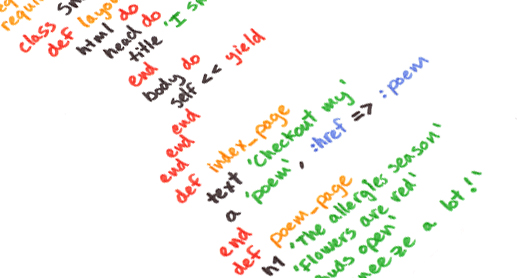 class
def
html do
head do
title 'I
end
body do
self << yield
end
end
end
def index_page
text 'Checkout my'
a 'poem', :href => :poem
end
def poem_page
h1 'The allergies season'
'Flowers are red'
open'
a lot!'